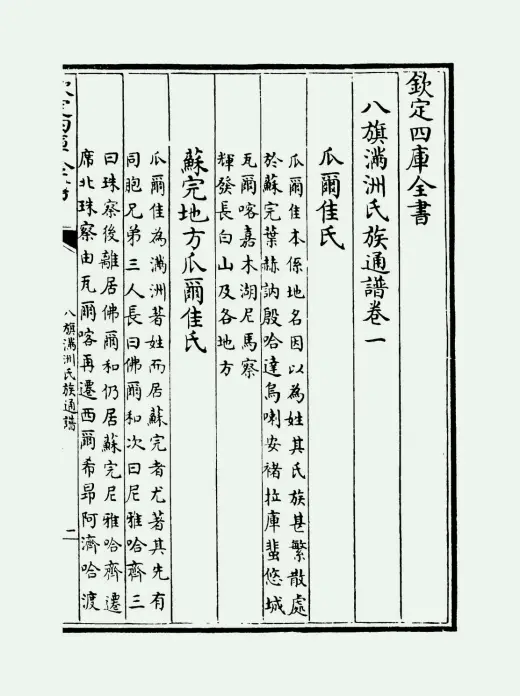 欽定四庫全書
八旗滿洲氏族通譜卷一
瓜爾佳氏
瓜爾佳本係地名因以為姓其氏族甚繁散處
於蘇完葉赫訥殷哈達烏喇安褚拉庫蜚悠城
瓦爾喀嘉木湖尼馬察
輝發長白山及各地方
蘇完地方瓜爾佳氏
瓜爾佳為滿洲著姓而居蘇完者尤著其先有
同胞兄弟三人長曰佛爾和次曰尼雅哈齊三
曰珠察後離居佛爾和仍居蘇完尼雅哈齊遷
席北珠察由瓦爾喀再遷西爾希昂阿濟哈渡
欽定四庫全書
八旗滿洲氏族通譜